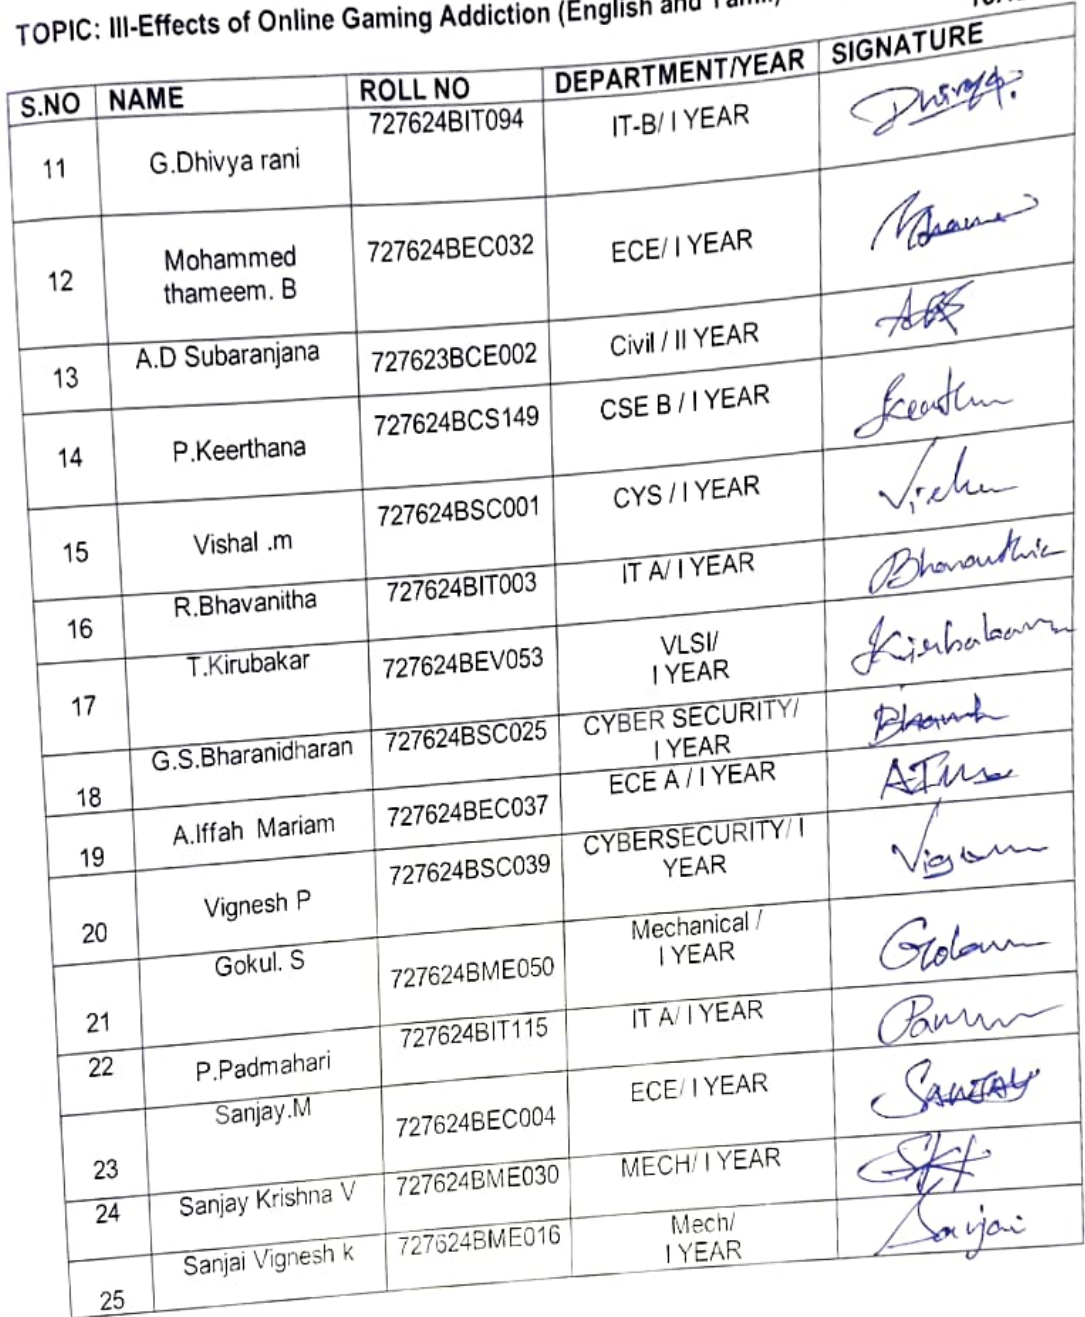 TOPIC: Ill-Effects of Online Gaming Addiction (English and
S.NO NAME ROLL NO DEPARTMENT/YEAR SIGNATURE
11 G.Dhivya rani 727624BIT094 IT-B/ I YEAR Dhivya.
12 Mohammed thameem. B 727624BEC032 ECE/ I YEAR
13 A.D Subaranjana 727623BCE002 Civil / II YEAR
14 P.Keerthana 727624BCS149 CSE B / I YEAR
15 Vishal .m 727624BSC001 CYS / I YEAR
16 R.Bhavanitha 727624BIT003 IT A/ I YEAR
17 T.Kirubakar 727624BEV053 VLSI/ I YEAR
18 G.S.Bharanidharan 727624BSC025 CYBER SECURITY/ I YEAR
19 A.Iffah Mariam 727624BEC037 ECE A / I YEAR
20 Vignesh P 727624BSC039 CYBERSECURITY/ I YEAR
21 Gokul. S 727624BME050 Mechanical / I YEAR
22 P.Padmahari 727624BIT115 IT A/ I YEAR
23 Sanjay.M 727624BEC004 ECE/ I YEAR SANJAY
24 Sanjay Krishna V 727624BME030 MECH/ I YEAR
25 Sanjai Vignesh k 727624BME016 Mech/ I YEAR Sanjai